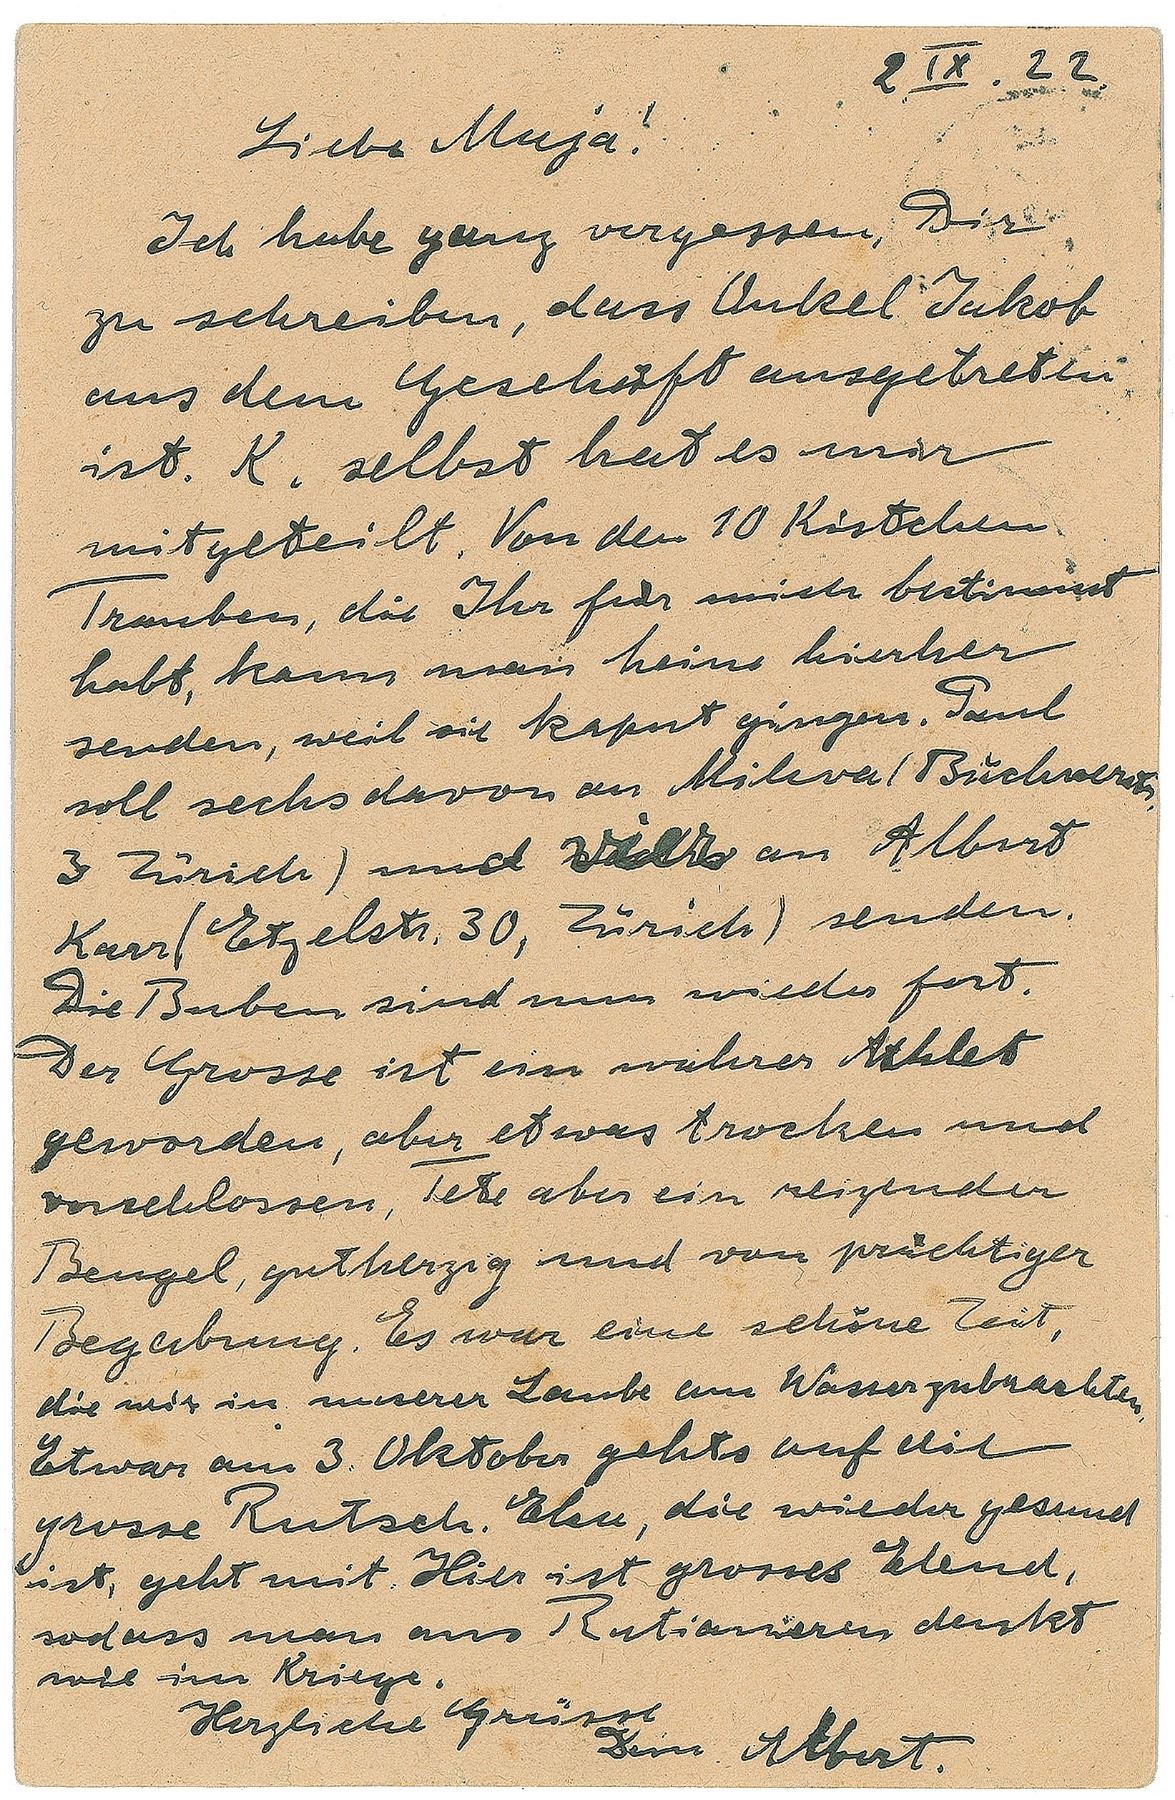 2 IX. 22.
Liebe Maja!
Ich habe ganz vergessen, Dir
zu schreiben, dass Onkel Jakob
aus dem Geschäft ausgetreten
ist. K. selbst hat es mir
mitgeteilt. Von den 10 Kistchen
Trauben, die Ihr für mich bestimmt
habt, kann man keine hierher
senden, weil sie kaput gingen. Paul
soll sechs davon an Mileva (Büchnerstr.
3 Zürich) und vier an Albert
Karr (Etzelstr. 30, Zürich) senden.
Die Buben sind nun wieder fort.
Der Grosse ist ein wahrer Athlet
geworden, aber etwas trocken und
verschlossen, Tete aber ein reizender
Bengel, gutherzig und von prächtiger
Begabung. Es war eine schöne Zeit,
die wir in unserer Laube am Wasser zubrachten.
Etwa am 3. Oktober gehts auf die
grosse Rutsch. Else, die wieder gesund
ist, geht mit. Hier ist grosses Elend,
sodass man ans Rationieren denkt
wie im Kriege.
Herzliche Grüsse
Dein Albert.